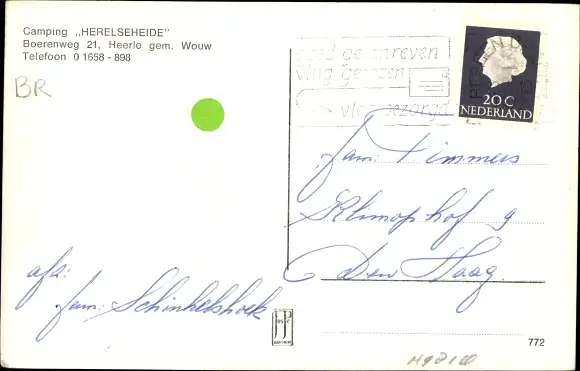 Camping „HERELSEHEIDE"
Boerenweg 21, Heerle gem. Wouw
Telefoon 0 1658 - 898
BR
goed geschreven
vlug gelezen
vlug bezorgd
20 C
NEDERLAND
fam: Timmers
Klimophof 9
Den Haag.
afz:
fam: Schinkelshoek
772